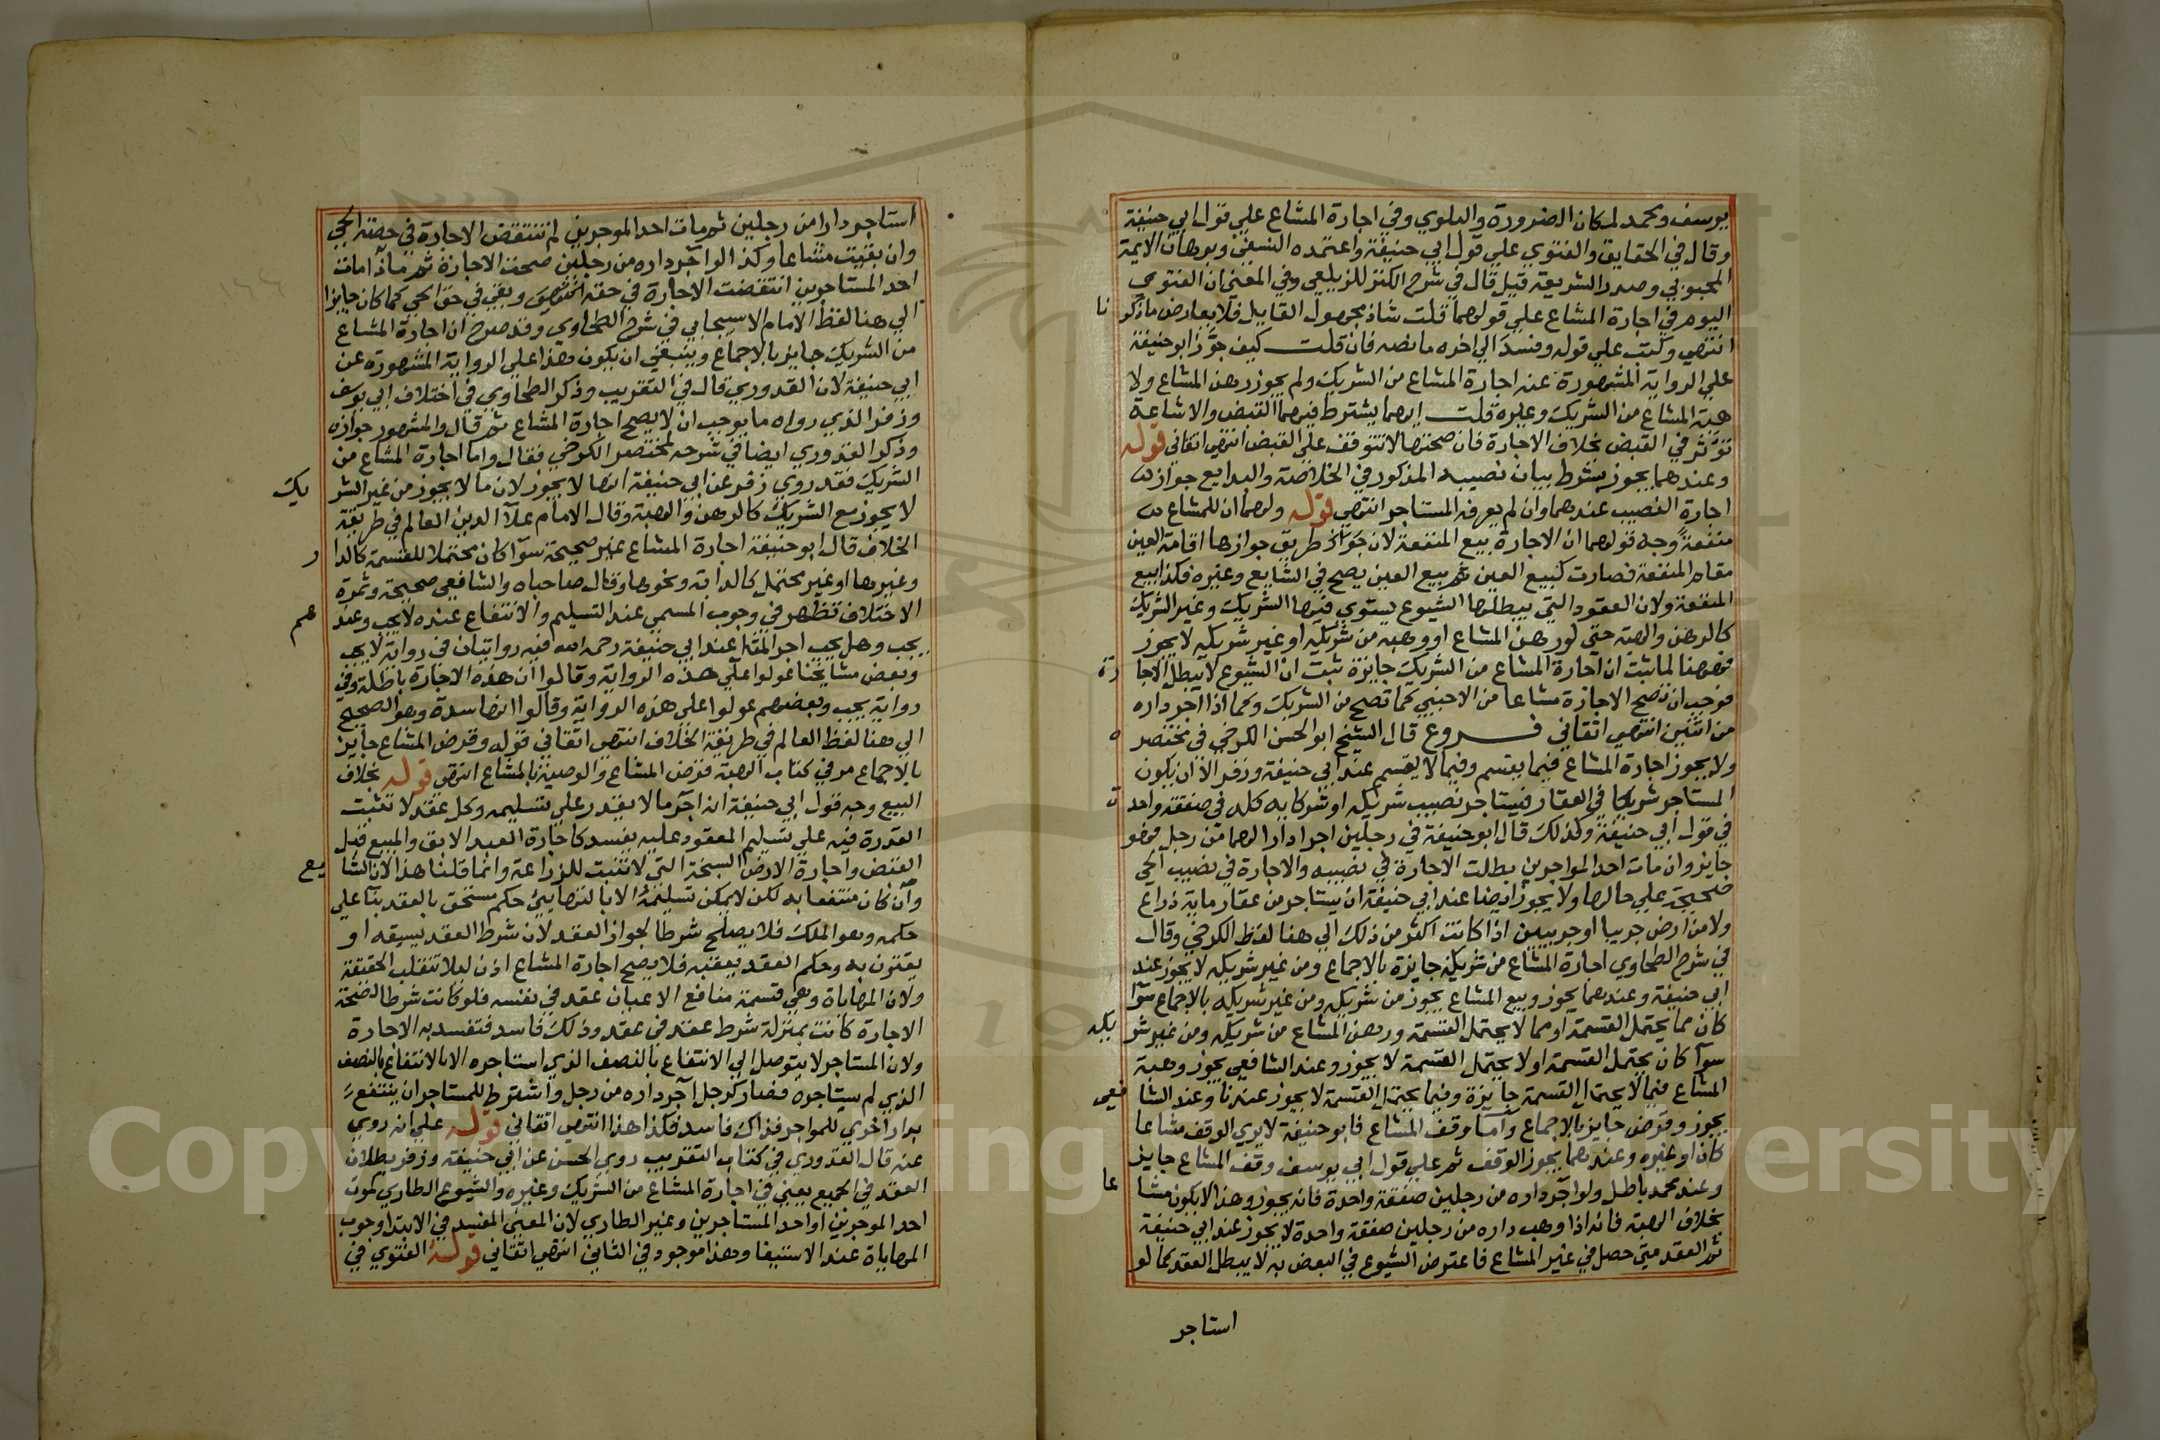 يوسف ومحمد لمكان الضرورة والبلوي وفي اجارة المشاع علي قول ابي حنيفة
وقال في الحقايق والفتوي علي قول ابي حنيفة واعتمده النسفي وبرهان الايمة
المحبوبي وصدر الشريعة قيل قال في شرح الكنز للزيلعي وفي المغني ان الفتوي
اليوم في اجارة المشاع علي قولهما قلت شاذ مجهول القايل فلا يعارض ما ذكرنا
انتهي وكتب علي قوله وفسد الي اخره ما نصه فان قلت كيف جوز ابو حنيفة
علي الرواية المشهورة عنه اجارة المشاع من الشريك ولم يجوز رهن المشاع ولا
هبة المشاع من الشريك وغيره قلت انهما يشترط فيهما القبض والاشاعة
تؤثر في القبض بخلاف الاجارة فان صحتها لا تتوقف علي القبض انتهي اتقاني قوله
وعندهما يجوز بشرط بيان نصيبه المذكور في الخلاصة والبدايع جواز
اجارة النصيب عندهما وان لم يعرفه المستاجر انتهي قوله ولهما ان للمشاع
منفعة وجه قولهما ان الاجارة بيع المنفعة لان جواز طريق جوازها اقامة العين
مقام المنفعة فصارت كبيع العين ثم بيع العين يصح في الشايع وغيره فكذا بيع
المنفعة ولان العقود التي يبطلها الشيوع يستوي فيها الشريك وغير الشريك
كالرهن والهبة حتي لو رهن المشاع او وهبه من شريكه او غير شريكه لا يجوز
فههنا لما ثبت ان اجارة المشاع من الشريك جايزة ثبت ان الشيوع لا يبطل الاجارة
فوجب ان تصح الاجارة مشاعا من الاجنبي كما تصح من الشريك وكما اذا اجر داره
من اثنين انتهي اتقاني فروع قال الشيخ ابو الحسن الكرخي في مختصره
ولا يجوز اجارة المشاع فيما يقسم وفيما لا يقسم عند ابي حنيفة وزفر الا ان يكون
المستاجر شريكا في العقار فيستاجر نصيب شريكه او شركايه كله في صفقة واحدة
في قول ابي حنيفة وكذلك قال ابو حنيفة في رجلين اجرا دارا لهما من رجل فهو
جايز وان مات احد المواجرين بطلت الاجارة في نصيبه والاجارة في نصيب الحي
صحيحة علي حالها ولا يجوز ايضا عند ابي حنيفة ان يستاجر من عقار ماية ذراع
ولا من ارض جريبا او جريبين اذا كانت اكثر من ذلك الي هنا لفظ الكرخي وقال
في شرح الطحاوي اجارة المشاع من شريكه جايزة بالاجماع ومن غير شريكه لا يجوز عند
ابي حنيفة وعندهما يجوز وبيع المشاع يجوز من شريكه ومن غير شريكه بالاجماع سوا
كان مما يحتمل القسمة او مما لا يحتمل القسمة ورهن المشاع من شريكه ومن غير شريكه
سوآ كان يحتمل القسمة او لا يحتمل القسمة لا يجوز وعند الشافعي يجوز وهبة
المشاع فيما لا يحتمل القسمة جايزة وفيما يحتمل القسمة لا يجوز عندنا وعند الشافعي
يجوز وقرض جايز بالاجماع وآما وقف المشاع فابو حنيفة لا يري الوقف مشاعا
كان او غيره وعندهما يجوز الوقف ثم علي قول ابي يوسف وقف المشاع جايز
وعند محمد باطل ولو اجر داره من رجلين صفقة واحدة فانه يجوز وهذا لا يكون مشاعا
بخلاف الهبة فانه اذا وهب داره من رجلين صفقة واحدة لا يجوز عند ابي حنيفة
ثم العقد متي حصل في غير المشاع فاعترض الشيوع في البعض به لا يبطل العقد كما لو
استاجر
استاجر دارا من رجلين ثم مات احد الموجرين لم تنتقض الاجارة في حصة الحي
وان بقيت مشاعا وكذا لو آجر داره من رجلين صحت الاجارة ثم ماذا مات
احد المستاجرين انتقضت الاجارة في حقه وبقي في حق الحي كما كان جايزا
الي هنا لفظ الامام الاسبيجابي في شرح الطحاوي وقد صرح ان اجارة المشاع
من الشريك جايز بالاجماع وينبغي ان يكون هذا علي الرواية المشهورة عن
ابي حنيفة لان القدوري قال في التقريب وذكر الطحاوي في اختلاف ابي يوسف
وزفر الذي رواه ما يوجب ان لا يصح اجارة المشاع ثم قال والمشهور جوازه
وذكر القدوري ايضا في شرحه لمختصر الكرخي فقال واما اجارة المشاع من
الشريك فقد روي زفر عن ابي حنيفة انها لا يجوز لان ما لا يجوز من غير الشريك
لا يجوز مع الشريك كالرهن والهبة وقال الامام علآ الدين العالم في طريقة
الخلاف قال ابو حنيفة اجارة المشاع غير صحيحة سوآ كان محتملا للقسمة كالدار
وغيرها او غير محتمل كالدابة ونحوها وقال صاحباه والشافعي صحيحة وثمرة
الاختلاف تظهر في وجوب المسمي عند التسليم والانتفاع عنده لا يجب وعندهم
يجب وهل يجب اجر المثل عند ابي حنيفة رحمه الله فيه روايتان في رواية لا يجب
وبعض مشايخنا عولوا علي هذه الرواية وقالوا ان هذه الاجارة باطلة وفي
رواية يجب وبعضهم عولوا علي هذه الرواية وقالوا انها فاسدة وهو الصحيح
الي هنا لفظ العالم في طريقة الخلاف انتهي اتقاني قوله وقرض المشاع جايز
بالاجماع مر في كتاب الهبة قرض المشاع والوصية بالمشاع انتهي قوله بخلاف
البيع وجه قول ابي حنيفة انه آجر ما لا يقدر علي تسليمه وكل عقد لا تثبت
القدرة فيه علي تسليم المعقود عليه يفسد كاجارة العبد الابق والمبيع قبل
القبض واجارة الارض السبخة التي لا تنبت للزراعة وانما قلنا هذا لان الشايع
وان كان منتفعا به لكن لا يمكن تسليمه الا بالتهايئ حكم مستحق بالعقد بنآ علي
حكمه وهو الملك فلا يصلح شرطا لجواز العقد لان شرط العقد يسبقه او
يقترن به وحكم العقد يعقبه فلا يصح اجارة المشاع اذن ليلا تنقلب الحقيقة
ولان المهاياة وهي قسمة منافع الاعيان عقد في نفسه فلو كانت شرطا لصحة
الاجارة كانت بمنزلة شرط عقد في عقد وذلك فاسد فتفسد به الاجارة
ولان المستاجر لا يتوصل الي الانتفاع بالنصف الذي استاجره الا بالانتفاع بالنصف
الذي لم يستاجره فصار كرجل آجر داره من رجل واشترط للمستاجر ان ينتفع
بدار اخري للمواجر فذاك فاسد فكذا هذا انتهي اتقاني قوله علي انه روي
عنه قال القدوري في كتاب التقريب روي الحسن عن ابي حنيفة وزفر بطلان
العقد في الجميع يعني في اجارة المشاع من الشريك وغيره والشيوع الطاري كموت
احد الموجرين او احد المستاجرين وغير الطاري لان المعني المفسد في الابتدا وجوب
المهاياة عند الاستيفا وهذا موجود في الثاني انتهي اتقاني قوله الفتوي في
Copyright © King Saud University